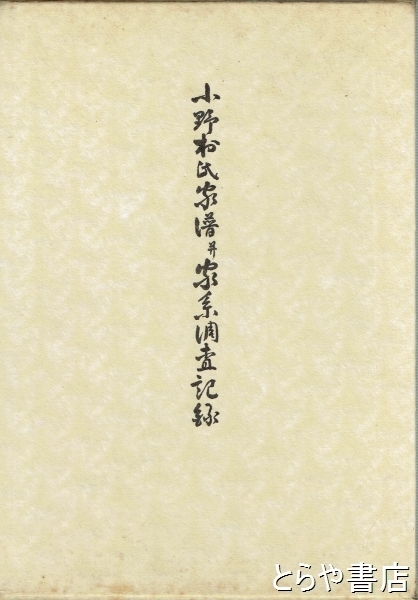 小野村氏家譜并家系調査記録
とらや書店